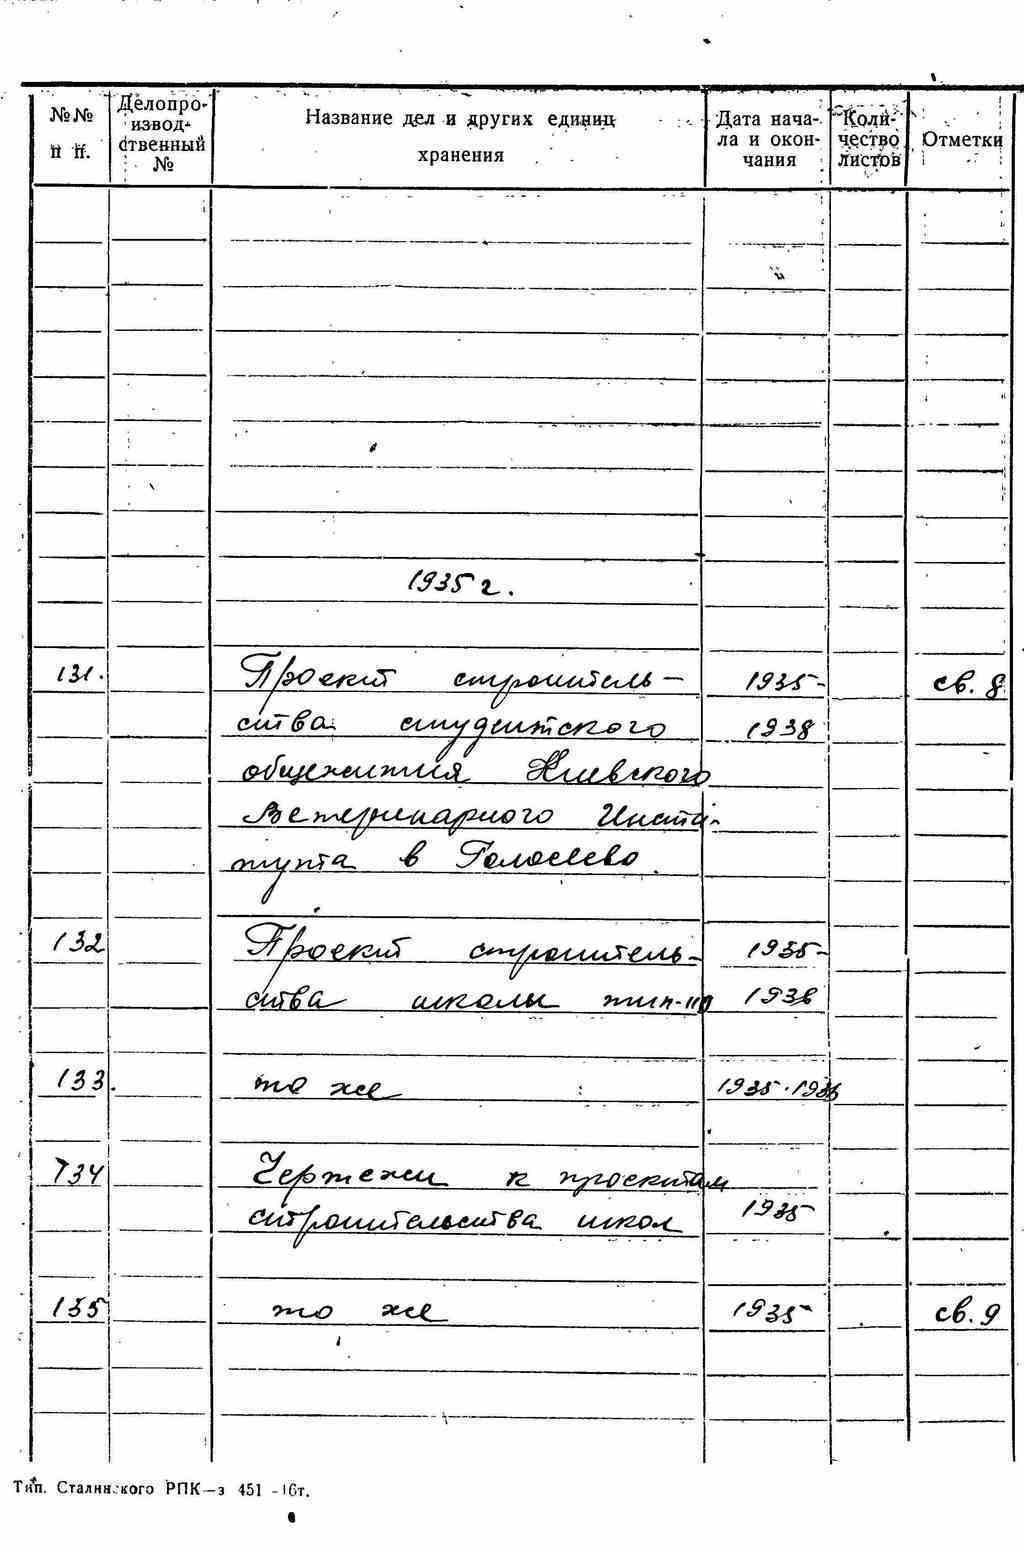 №№ п п.
Делопроизводственный №
Название дел и других единиц хранения
Дата начала и окончания
Количество листов
Отметки
1935 г.
131. Проект строитель- 1935- св. 8
ства студентского 1938
общежития Киевского
Ветеринарного Инсти-
тута в Голосеево.
132 Проект строитель- 1935-
ства школы тип- 1936
133. то же 1935-1936
134 Чертежи к проектам
строительства школ 1935
135 то же 1935 св. 9
Тип. Сталинского РПК—з 451 -16т.